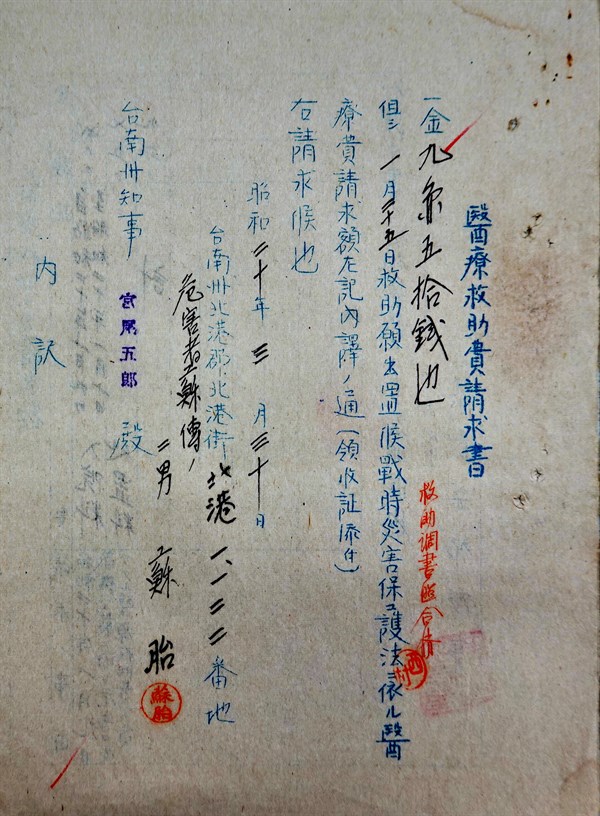 醫療救助費請求書
一金九円五拾錢也
救助調書照合濟
但シ一月二十五日救助願出置候戰時災害保護法ニ依ル醫
西村
療費請求額左記內譯ノ通(領收証添付)
右請求候也
昭和二十年三月三十日
台南州北港郡北港街北港一、一三二番地
危害者蘇傳ノ
二男 蘇胎
蘇胎
台南州知事 宮尾五郎 殿
內訳